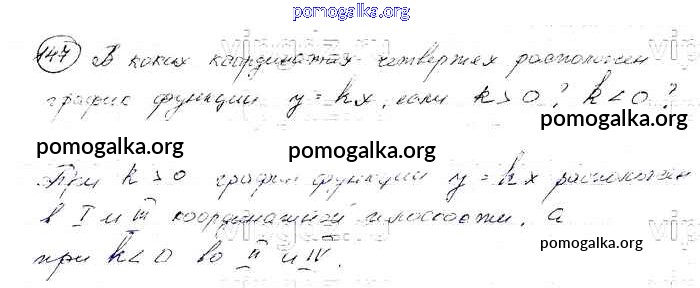 pomogalka.org
147 В каких координатных четвертях расположен
график функции y = kx, если k > 0? k < 0?
pomogalka.org
pomogalka.org
pomogalka.org
При k > 0 график функции y = kx расположен
в I и III координатной плоскости, а
pomogalka.org
при k < 0 во II и IV.